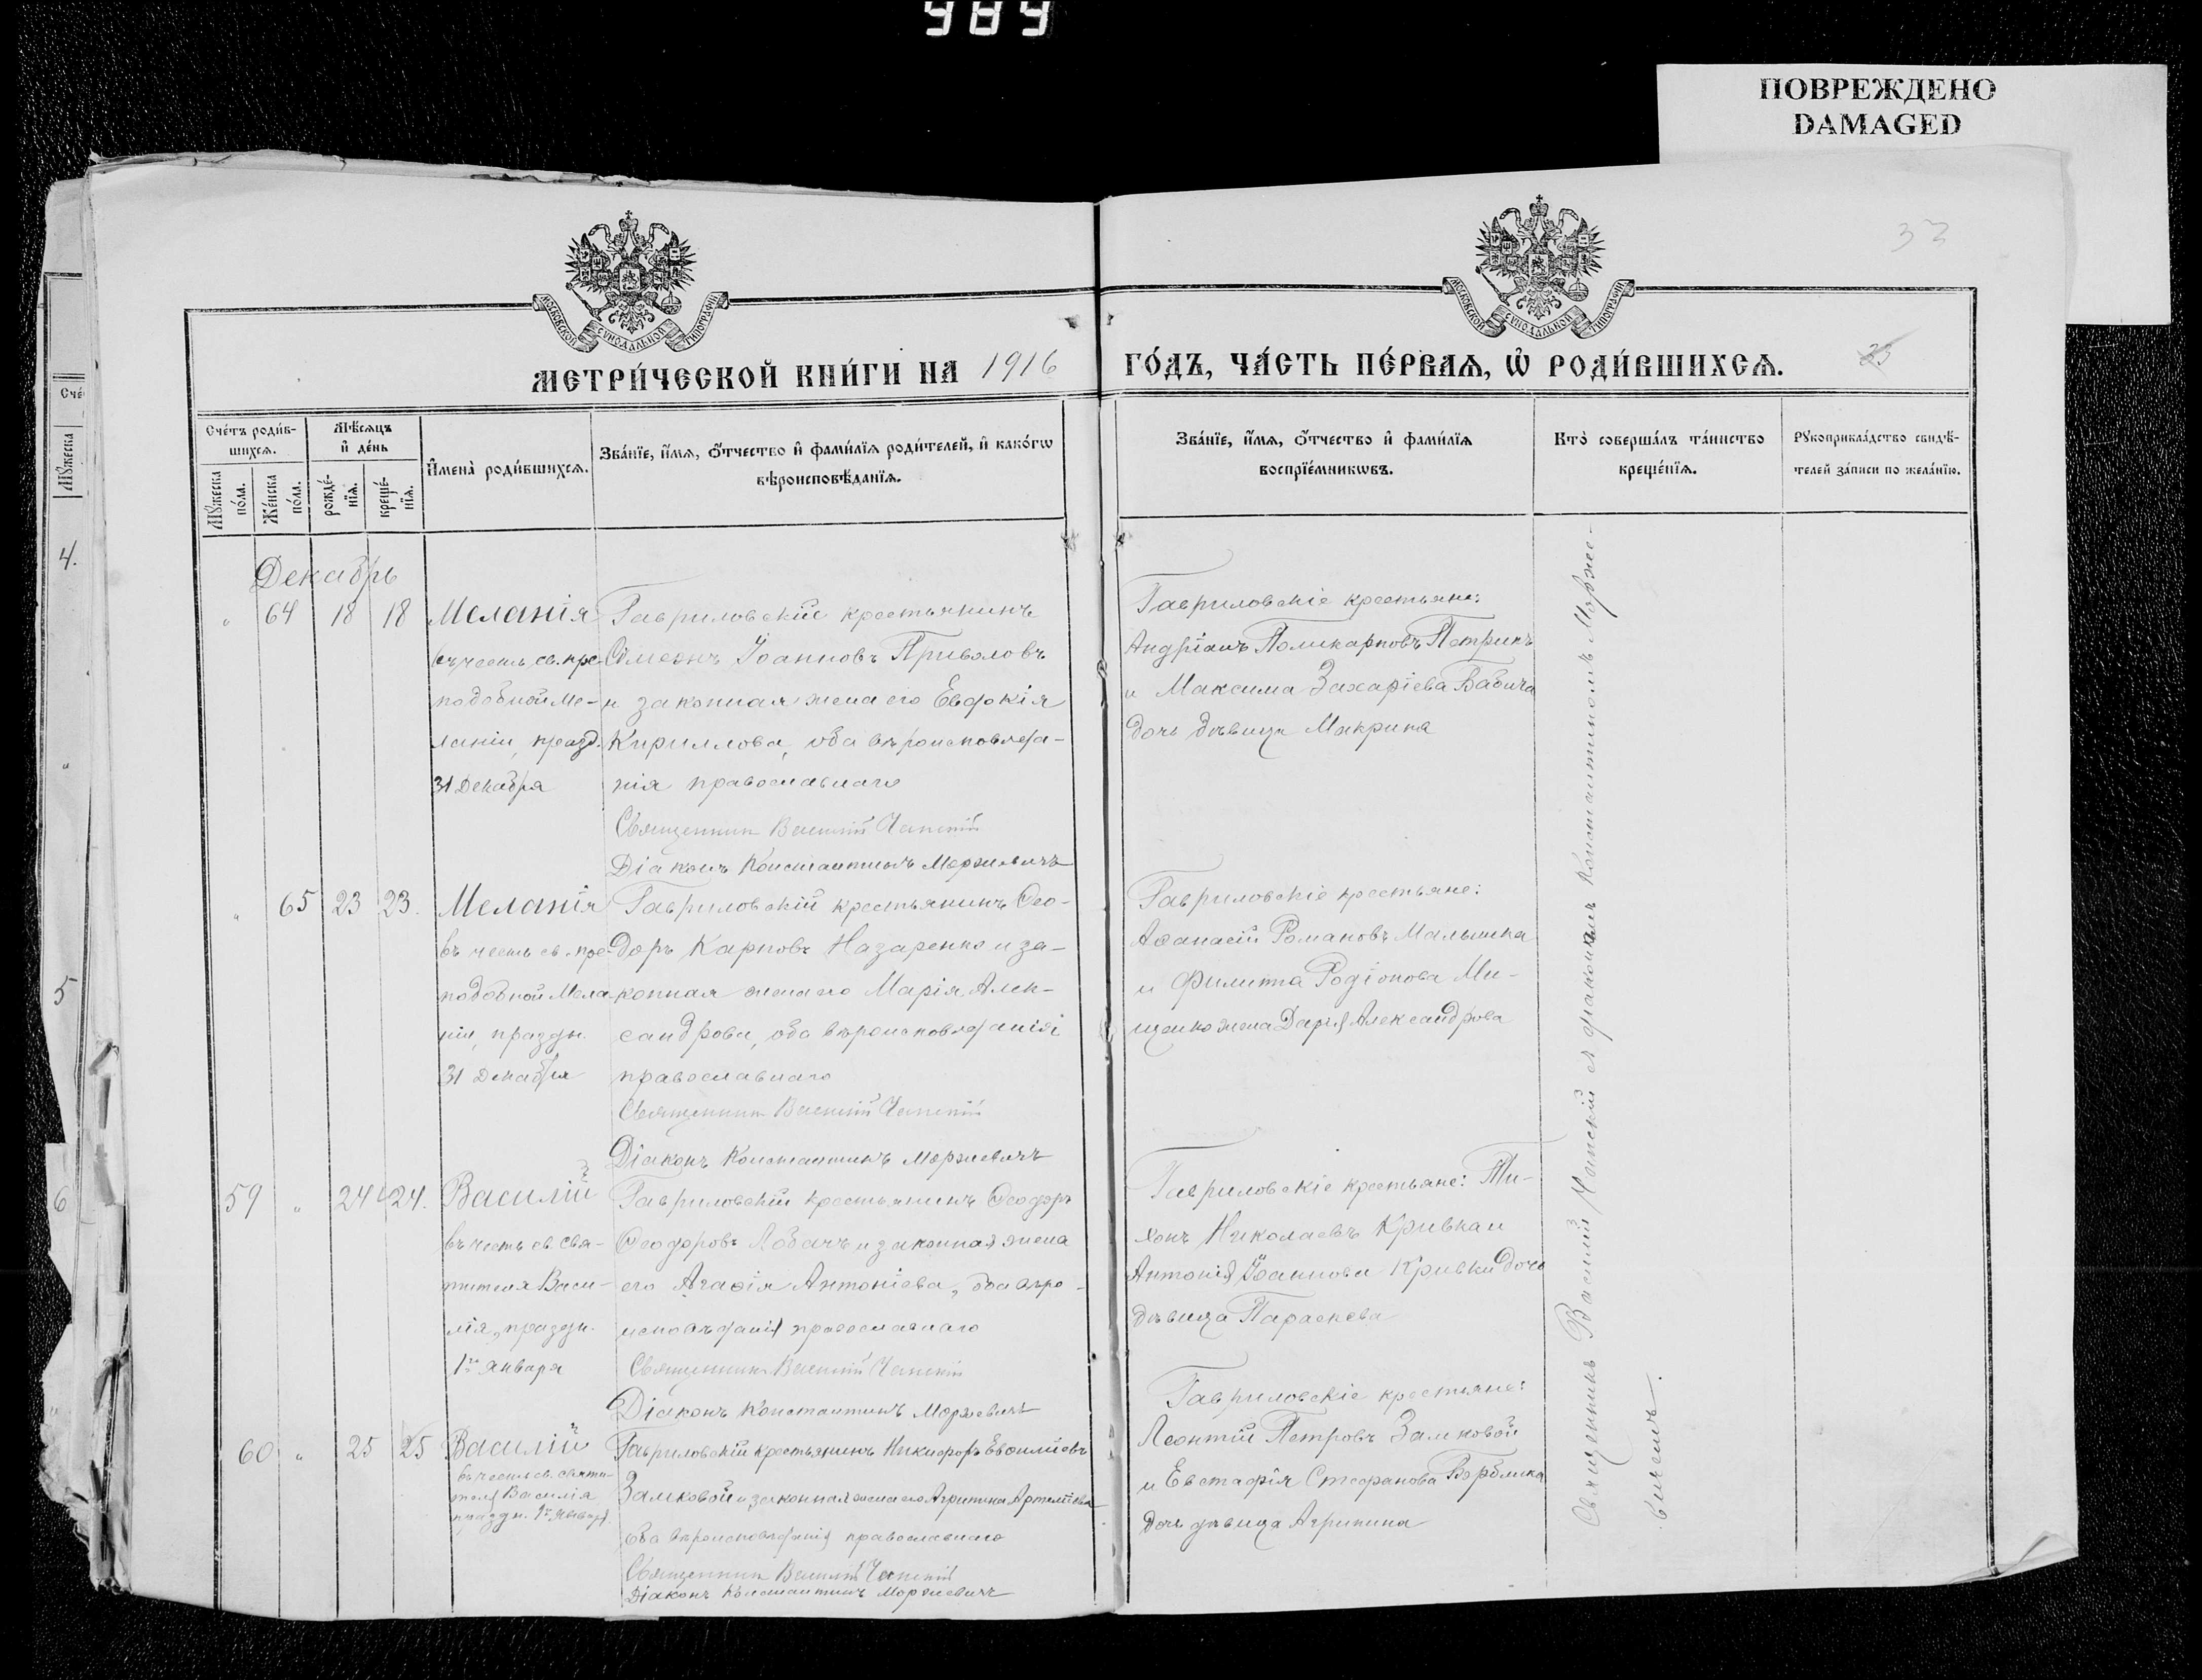 989
ПОВРЕЖДЕНО
DAMAGED
33
МОСКОВСКОЙ СѴНОДАЛЬНОЙ ТИПОГРАФІИ
МОСКОВСКОЙ СѴНОДАЛЬНОЙ ТИПОГРАФІИ
МЕТРИ́ЧЕСКОЙ КНИ́ГИ НА 1916
ГО́ДЪ, ЧА́СТЬ ПЕ́РВАѦ, Ѡ҆ РОДИ́ВШИХСѦ.
25
Сче́тъ роди́в-
шихсѧ.
Мꙋ́жеска
по́ла.
Же́нска
по́ла.
Мѣ́сѧцъ
и҆ де́нь
рожде́-
нїѧ.
креще́-
нїѧ.
И҆мена̀ роди́вшихсѧ.
Зва́нїе, и҆́мѧ, ѻ҆́тчество и҆ фами́лїѧ роди́телей, и҆ како́гѡ
вѣроисповѣ́данїѧ.
Зва́нїе, и҆́мѧ, ѻ҆́тчество и҆ фами́лїѧ
воспрїе́мникѡвъ.
Кто̀ соверша́лъ та́инство
креще́нїѧ.
Рꙋкоприкла́дство свидѣ́-
телей за́писи по жела́нїю.
Сче́
Мꙋ́жеска
4.
5
6
Декабрь
" 64 18 18 Меланія
въ честь св. пре-
подобной Ме-
ланіи, празд.
31 Декабря
Гавриловскій крестьянинъ
Сѵмеонъ Іоанновъ Приволовъ
и законная жена его Евдокія
Кириллова, оба вѣроисповѣда-
нія православнаго
Священникъ Василій Чапскій
Діаконъ Константинъ Моржевичъ
Гавриловскіе крестьяне:
Андріанъ Поликарповъ Петрикъ
и Максима Захаріева Бабича
дочь дѣвица Макрина
" 65 23 23. Меланія
въ честь св. пре-
подобной Мела
ніи, праздн.
31 Декабря
Гавриловскій крестьянинъ Ѳео-
доръ Карповъ Назаренко и за-
конная жена его Марія Алек-
сандрова, оба вѣроисповѣданія
православнаго
Священникъ Василій Чапскій
Діаконъ Константинъ Моржевичъ
Гавриловскіе крестьяне:
Аѳанасій Романовъ Малышка
и Филиппа Родіонова Ми-
щенко жена Дарія Александрова
59 " 24 24. Василій
въ честь св. Свя-
тителя Васи-
лія, праздн.
1го января
Гавриловскій крестьянинъ Ѳеодоръ
Ѳеодоровъ Лобачъ и законная жена
его Агаѳія Антоніева, оба вѣро-
исповѣданія православнаго
Священникъ Василій Чапскій
Діаконъ Константинъ Моржевичъ
Гавриловскіе крестьяне: Ти-
хонъ Николаевъ Кривка и
Антонія Іоаннова Кривки дочь
дѣвица Параскева
60 " 25 25 Василій
въ честь св. святи-
теля Василія
праздн. 1го Января
Гавриловскій крестьянинъ Никифоръ Евѳиміевъ
Замковой и законная жена его Агрипина Артеміева
оба вѣроисповѣданія православнаго
Священникъ Василій Чапскій
Діаконъ Константинъ Моржевичъ
Гавриловскіе крестьяне:
Леонтій Петровъ Замковой
и Евстафія Стефанова Верблика
дочь дѣвица Агрипина
Священникъ Василій Чапскій съ діакономъ Константиномъ Морже-
вичемъ.